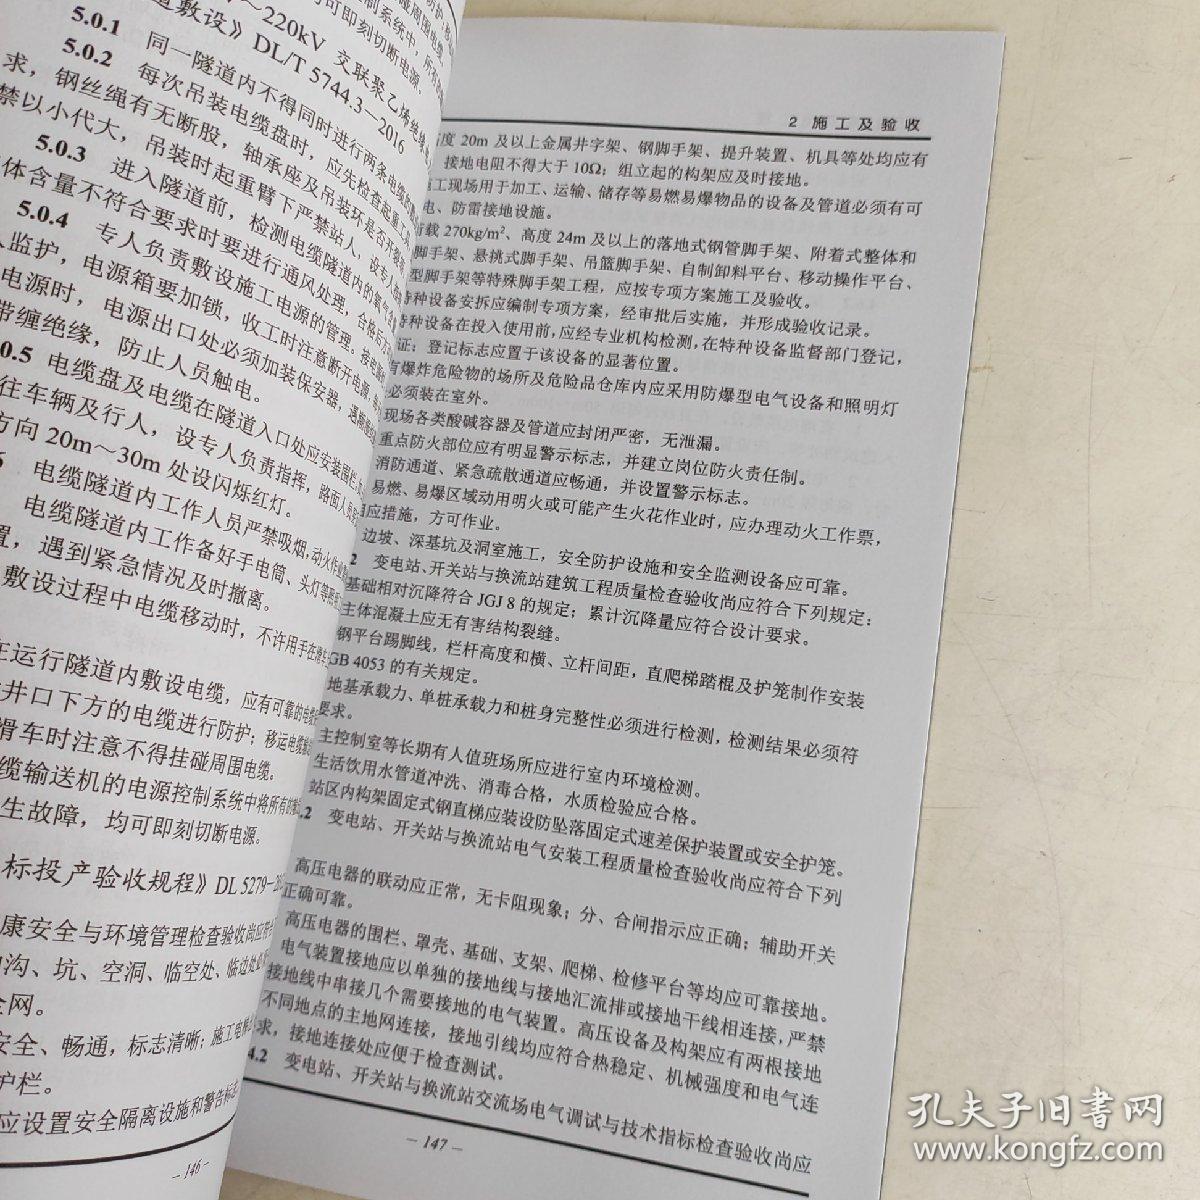 ～220kV 交联聚乙烯绝缘
道敷设》DL/T 5744.3—2016
5.0.1 同一隧道内不得同时进行两条电缆的
5.0.2 每次吊装电缆盘时，应先检查起重工
求，钢丝绳有无断股，轴承座及吊装环是否开裂
禁以小代大，吊装时起重臂下严禁站人，设专人
5.0.3 进入隧道前，检测电缆隧道内的氧气
体含量不符合要求时要进行通风处理，合格后方
5.0.4 专人负责敷设施工电源的管理。接电源
人监护，电源箱要加锁，收工时注意断开电源，
电源时，电源出口处必须加装保安器，
带缠绝缘，防止人员触电。
0.5 电缆盘及电缆在隧道入口处应安装围栏，
往车辆及行人，设专人负责指挥，路面
方向 20m～30m 处设闪烁红灯。
6 电缆隧道内工作人员严禁吸烟，动火作
电缆隧道内工作备好手电筒、头灯等
置，遇到紧急情况及时撤离。
敷设过程中电缆移动时，不许用手在滑车
在运行隧道内敷设电缆，应有可靠的电缆
井口下方的电缆进行防护；移运电缆
滑车时注意不得挂碰周围电缆。
缆输送机的电源控制系统中将所有
生故障，均可即刻切断电源。
标投产验收规程》DL 5279-20
康安全与环境管理检查验收尚应符合
沟、坑、空洞、临空处、临边处
全网。
安全、畅通，标志清晰；施工电梯
护栏。
应设置安全隔离设施和警告标志
—146—
2 施工及验收
高度 20m 及以上金属井字架、钢脚手架、提升装置、机具等处均应有
接地电阻不得大于 10Ω；组立起的构架应及时接地。
施工现场用于加工、运输、储存等易燃易爆物品的设备及管道必须有可
电、防雷接地设施。
荷载 270kg/m²、高度 24m 及以上的落地式钢管脚手架、附着式整体和
脚手架、悬挑式脚手架、吊篮脚手架、自制卸料平台、移动操作平台、
型脚手架等特殊脚手架工程，应按专项方案施工及验收。
特种设备安拆应编制专项方案，经审批后实施，并形成验收记录。
特种设备在投入使用前，应经专业机构检测，在特种设备监督部门登记，
证；登记标志应置于该设备的显著位置。
有爆炸危险物的场所及危险品仓库内应采用防爆型电气设备和照明灯
必须装在室外。
现场各类酸碱容器及管道应封闭严密，无泄漏。
重点防火部位应有明显警示标志，并建立岗位防火责任制。
消防通道、紧急疏散通道应畅通，并设置警示标志。
易燃、易爆区域动用明火或可能产生火花作业时，应办理动火工作票，
相应措施，方可作业。
边坡、深基坑及洞室施工，安全防护设施和安全监测设备应可靠。
2 变电站、开关站与换流站建筑工程质量检查验收尚应符合下列规定：
基础相对沉降符合 JGJ 8 的规定；累计沉降量应符合设计要求。
主体混凝土应无有害结构裂缝。
钢平台踢脚线，栏杆高度和横、立杆间距，直爬梯踏棍及护笼制作安装
GB 4053 的有关规定。
地基承载力、单桩承载力和桩身完整性必须进行检测，检测结果必须符
要求。
主控制室等长期有人值班场所应进行室内环境检测。
生活饮用水管道冲洗、消毒合格，水质检验应合格。
站区内构架固定式钢直梯应装设防坠落固定式速差保护装置或安全护笼。
.2 变电站、开关站与换流站电气安装工程质量检查验收尚应符合下列
高压电器的联动应正常，无卡阻现象；分、合闸指示应正确；辅助开关
正确可靠。
高压电器的围栏、罩壳、基础、支架、爬梯、检修平台等均应可靠接地。
电气装置接地应以单独的接地线与接地汇流排或接地干线相连接，严禁
接地线中串接几个需要接地的电气装置。高压设备及构架应有两根接地
不同地点的主地网连接，接地引线均应符合热稳定、机械强度和电气连
求，接地连接处应便于检查测试。
4.2 变电站、开关站与换流站交流场电气调试与技术指标检查验收尚应
—147—
孔夫子旧书网
www.kongfz.com